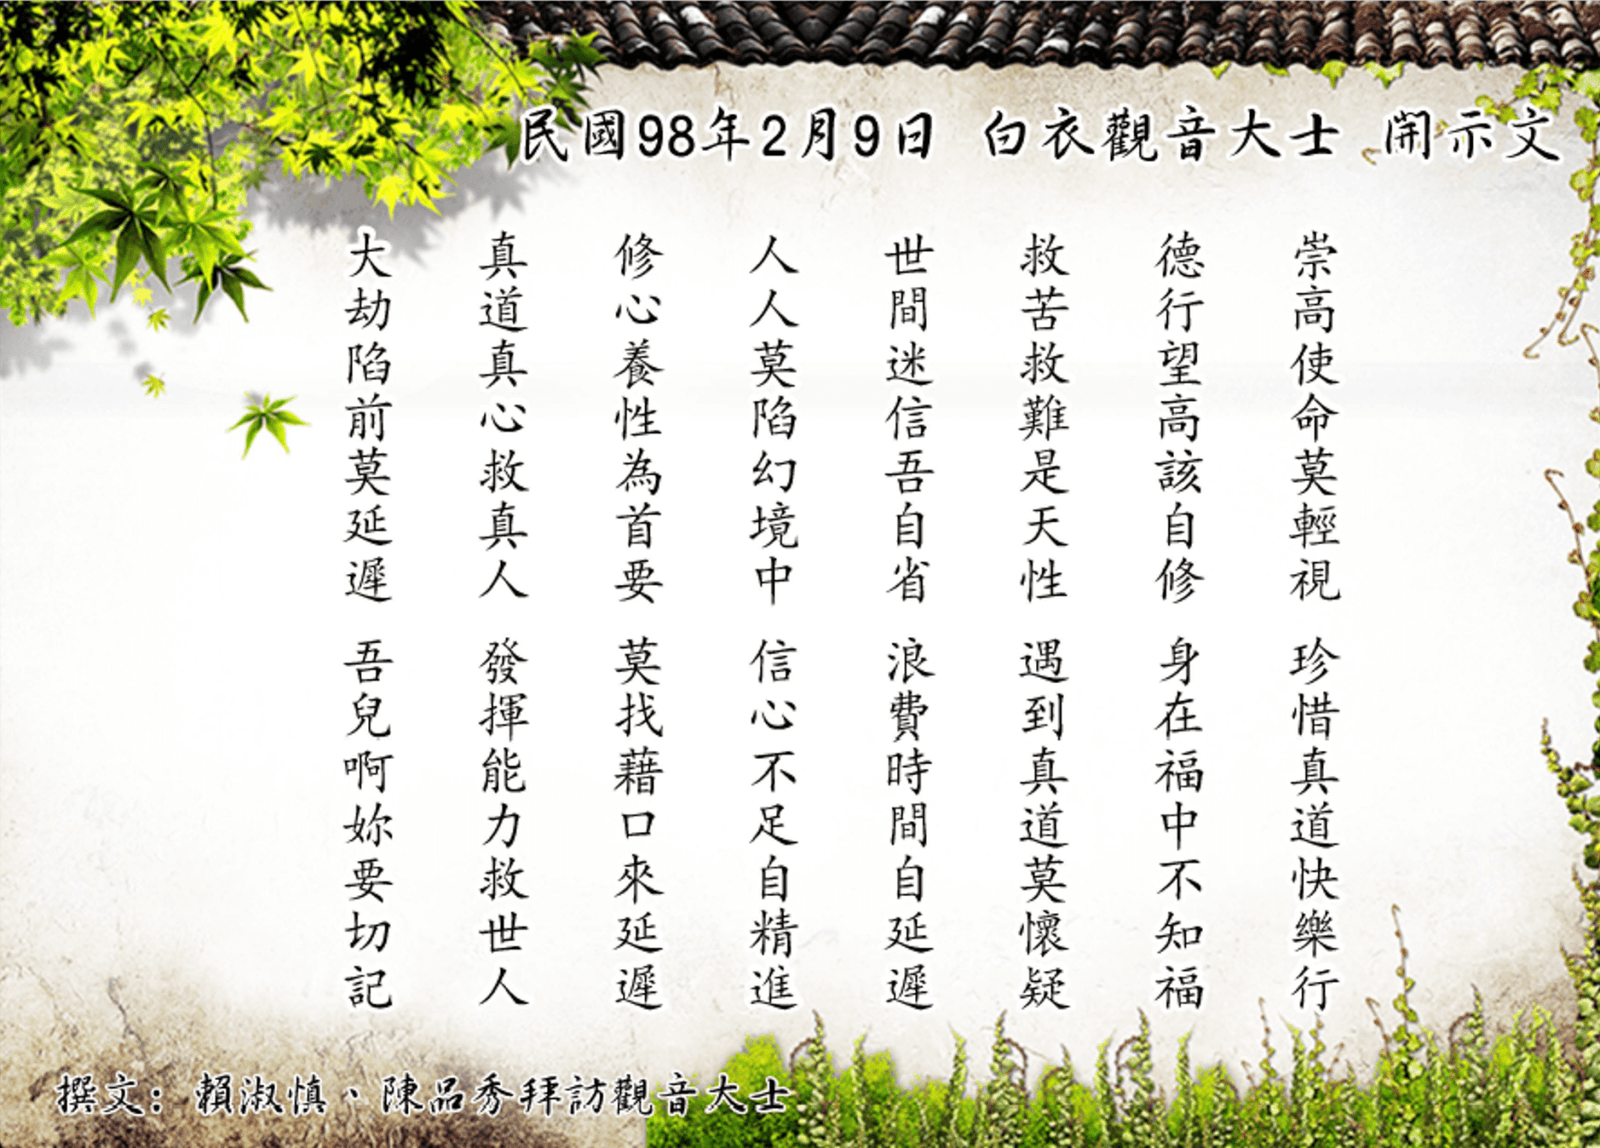 民國98年2月9日 白衣觀音大士 開示文
崇高使命莫輕視 珍惜真道快樂行
德行望高該自修 身在福中不知福
救苦救難是天性 遇到真道莫懷疑
世間迷信吾自省 浪費時間自延遲
人人莫陷幻境中 信心不足自精進
修心養性為首要 莫找藉口來延遲
真道真心救真人 發揮能力救世人
大劫陷前莫延遲 吾兒啊妳要切記
撰文：賴淑慎、陳品秀拜訪觀音大士